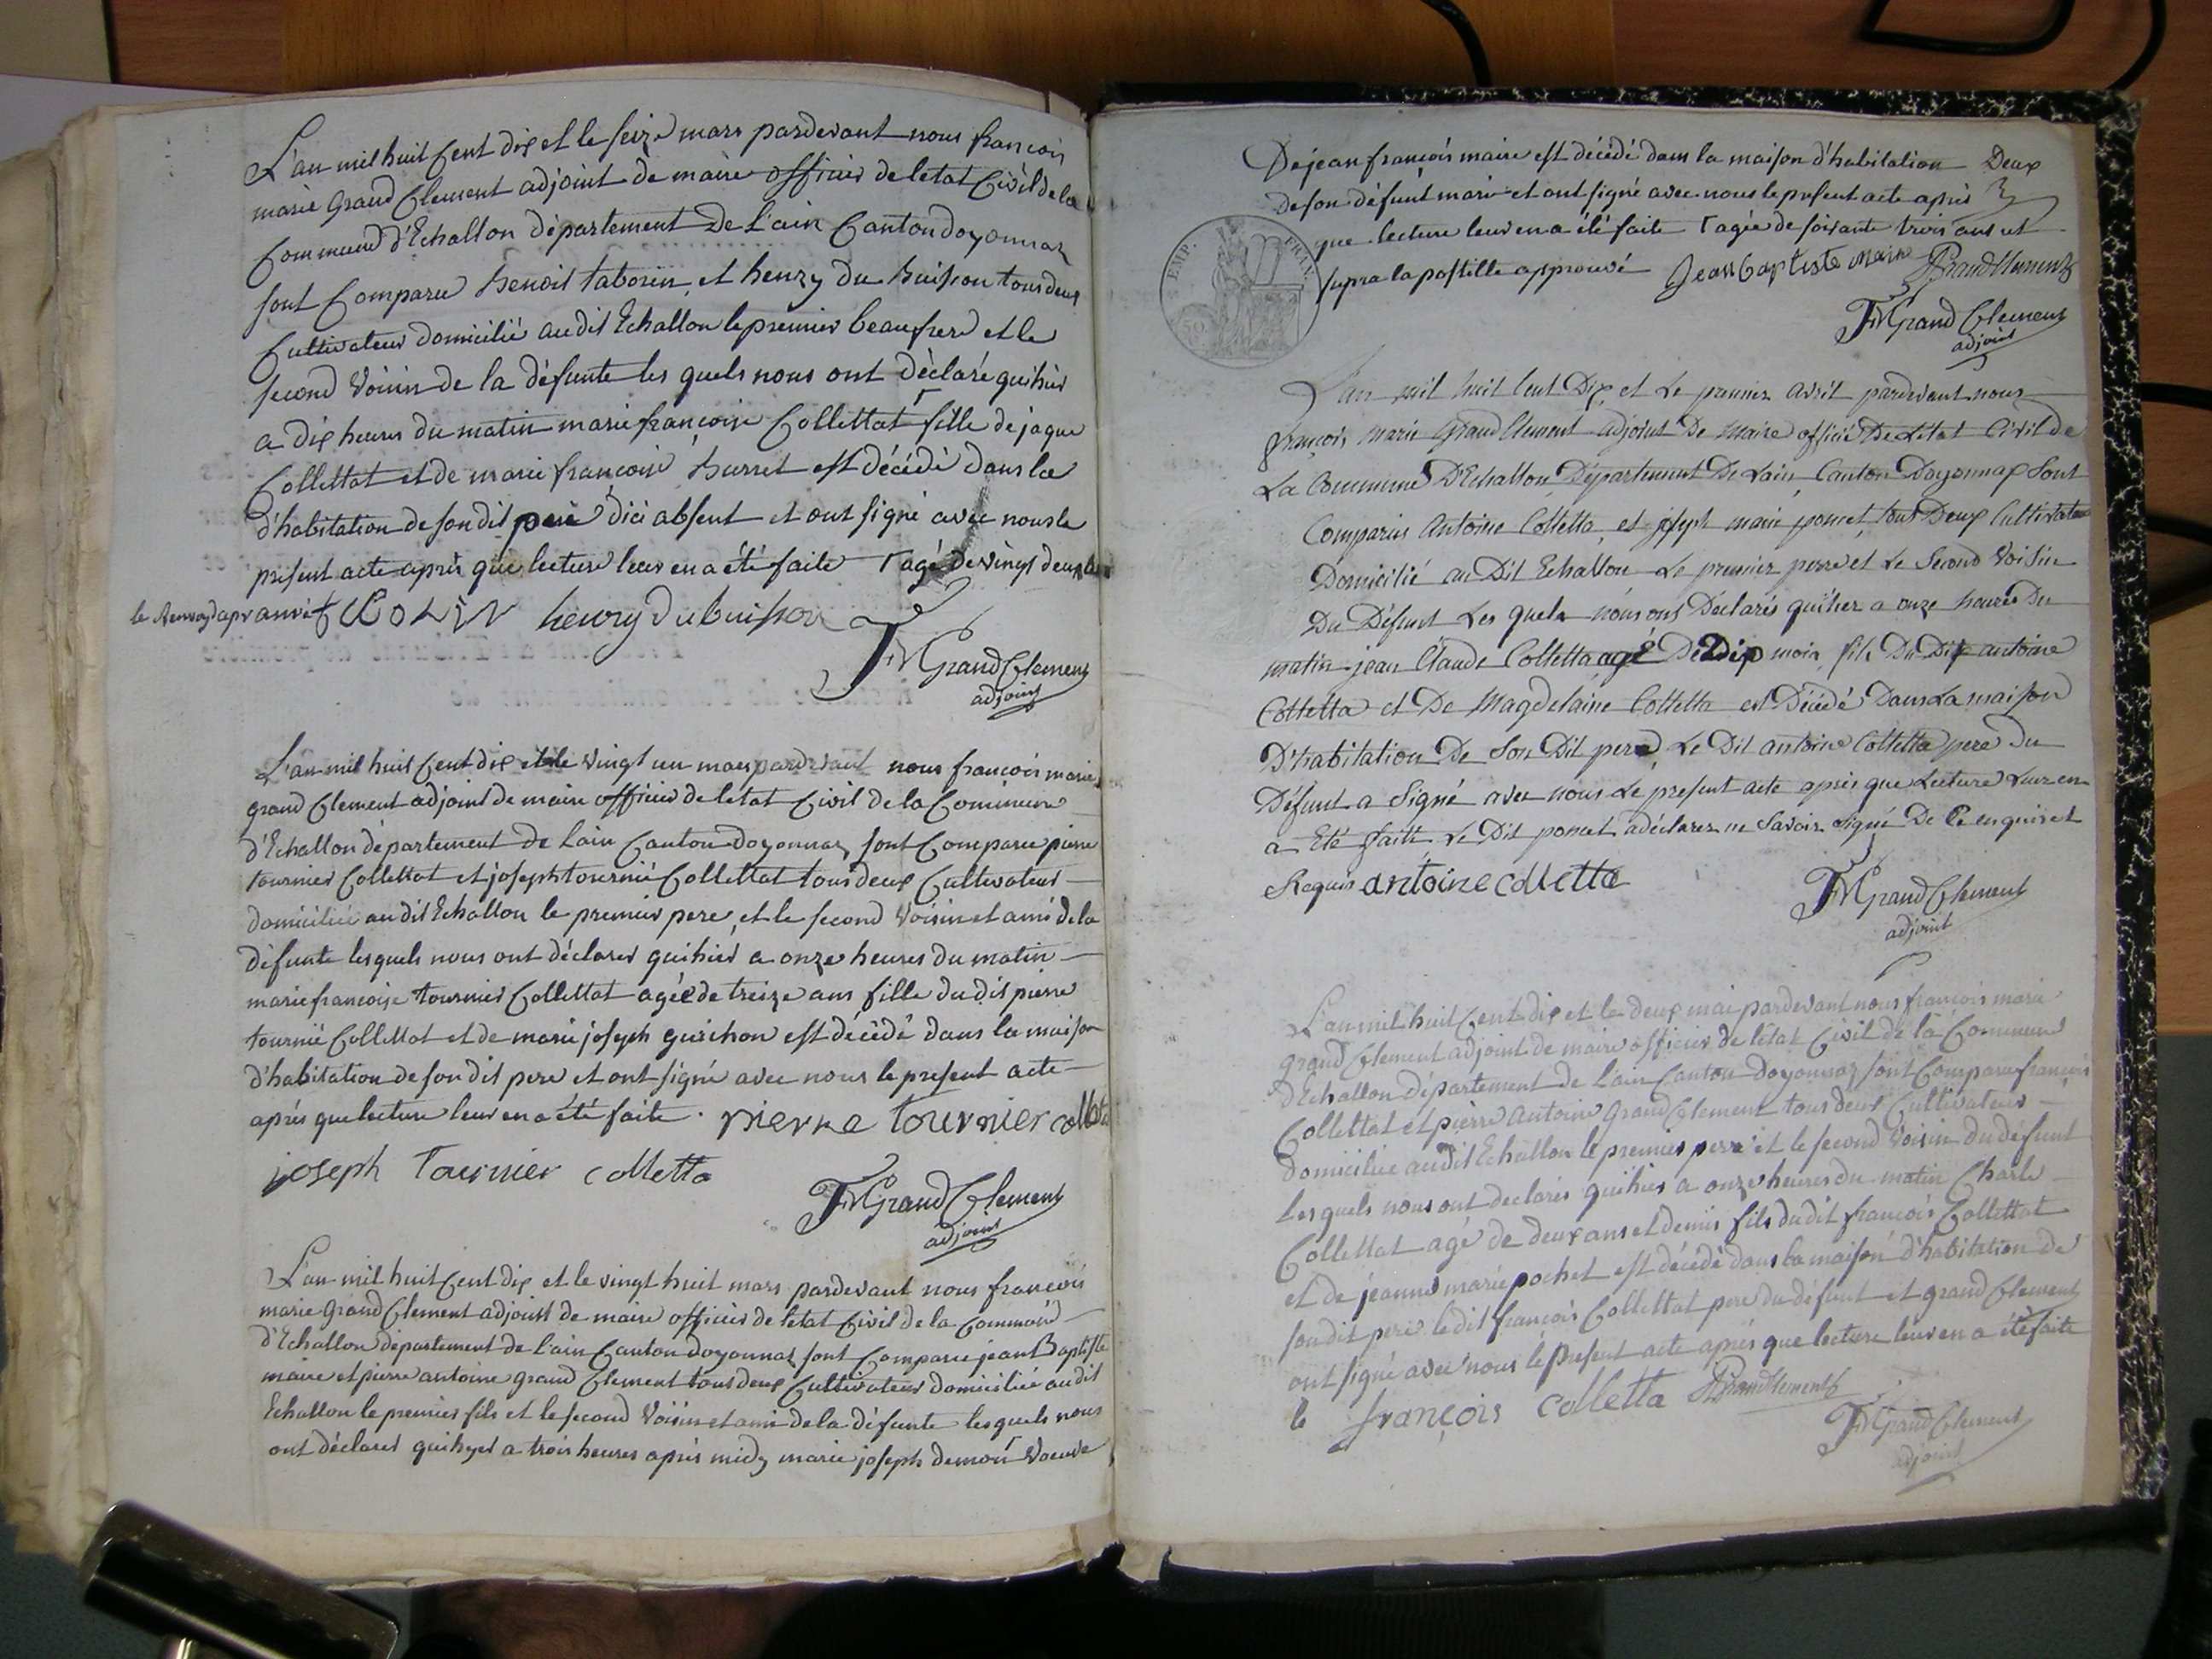 L'an mil huit Cent dix et le seize mars pardevant nous françois
marie Grand Clement adjoint de maire officier de letat Civil de la
Commune d'Echallon département De L'ain Canton doyonnax
sont Comparu Benoit taborin et henry du buisson tous deux
Cultivateur domicilié audit Echallon le premier beaufrere et le
second Voisin de la défunte les quels nous ont déclaré quihier
a dix heures du matin marie françoise Collettat ┌ fille de jaque
Collettat et de marie françoise burret est décédé dans la
d'habitation de son dit pere dici absent et ont signé avec nous le
présent acte après que lecture leur en a été faite ┌ agé de vingt deux ans
le renvoy approuvé
henry dubuisson
FMGrand Clement
adjoint
L'an mil huit Cent dix et le vingt un mars pardevant nous françois marie
grand Clement adjoint de maire officier de letat Civil de la Commune
d'Echallon département de Lain Canton doyonnax sont Comparu pierre
tournier Collettat et joseph tournié Collettat tous deux Cultivateur
domicilié au dit Echallon le premier pere, et le second Voisin et ami de la
défunte lesquels nous ont déclarer quihier a onze heures du matin
marie françoise tournier Collettat agée de treize ans fille du dit pierre
tournié Collettat et de marie joseph guichon est décédé dans la maison
d'habitation de son dit pere et ont signé avec nous le present acte
après que lecture leur en a été faite. pierre tournier colleta
joseph Tournier colletta
FMGrand Clement
adjoint
L'an mil huit Cent dix et le vingt huit mars pardevant nous françois
marie Grand Clement adjoint de maire officier de letat Civil de la Commune
d'Echallon département de L'ain Canton doyonnax sont Comparu jean Baptiste
maire et pierre antoine grand Clement tous deux Cultivateur domicilié audit
Echallon le premier fils et le second Voisin et ami de la défunte lesquels nous
ont déclarer quihyer a trois heures après midy marie joseph demon ┌ Veuve
De jean françois maire est décédé dans la maison d'habitation Deux
de son défunt mari et ont signé avec nous le present acte après
que lecture leur en a été faite ┌ agée de soixante trois ans ut
supra la postille approuvé Jean baptiste maire PGrandClement
FMGrand Clement
adjoint
EMP. FRAN.
50
L'an mil huit Cent Dix et Le premier avril pardevant nous
françois marie Grand Clement adjoint De Maire officié De Letat Civil de
La Commune D'Echallon Département De Lain Canton Doyonnax Sont
Comparus Antoine Colletta, et joseph marie poncet tous Deux Cultivateur
Domicilié au Dit Echallon Le premier perre et Le Second Voisin
Du Défunt Les quels nous ont Déclarés quihier a onze heures Du
matin jean Claude Colletta agé De Dix mois fils Du Dit antoine
Colletta et De Magdelaine Colletta est Décédé Dans La maison
D'habitation De Son Dit pere, Le Dit antoine Colletta pere du
Défunt a Signé avec nous Le present acte après que Lecture Leur en
a Eté faitte Le Dit poncet a déclarer ne Savoir signé De Ce enquis et
Requis antoine colletta
FMGrand Clement
adjoint
L'an mil huit Cent dix et le deux mai pardevant nous françois marie
grand Clement adjoint de maire officier de létat Civil de la Commune
d'Echallon département de L'ain Canton doyonnax sont Comparu françois
Collettat et pierre antoine Grand Clement tous deux Cultivateur
domiciliée audit Echallon le premier perre et le second Voisin du défunt
Lesquels nous ont déclarés quihier a onze heures du matin Charle
Collettat agé de deux ans et demis fils du dit françois Collettat
et de jeanne marie pochet est décédé dans la maison d'habitation de
son dit pere ledit françois Collettat pere du défunt et grand Clement
ont signé avec nous le present acte après que lecture leur en a été faite
le françois colletta PGrandClement
FMGrand Clement
adjoint